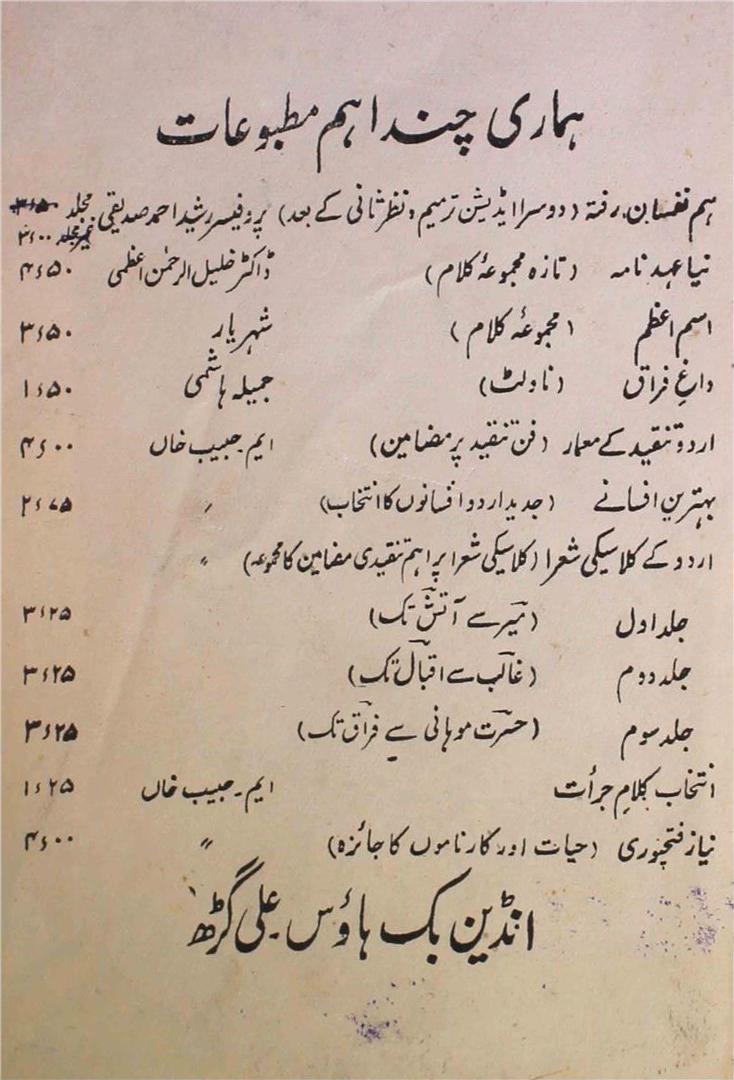 ہماری چند اہم مطبوعات
ہم نفسانِ رفتہ (دوسرا ایڈیشن ترمیم و نظر ثانی کے بعد) پروفیسر رشید احمد صدیقی مجلد ۳؍۵۰
غیر مجلد ۳؍۰۰
نیا عہد نامہ (تازہ مجموعۂ کلام) ڈاکٹر خلیل الرحمٰن اعظمی ۴؍۵۰
اسمِ اعظم (مجموعۂ کلام) شہریار ۳؍۵۰
داغِ فراق (ناولٹ) جمیلہ ہاشمی ۱؍۵۰
اردو تنقید کے معمار (فن تنقید پر مضامین) ایم۔حبیب خاں ۴؍۰۰
بہترین افسانے (جدید اردو افسانوں کا انتخاب) ״ ۲؍۷۵
اردو کے کلاسیکی شعرا (کلاسیکی شعرا پر اہم تنقیدی مضامین کا مجموعہ) ״
جلد اول (میرؔ سے آتشؔ تک) ۳؍۲۵
جلد دوم (غالبؔ سے اقبالؔ تک) ۳؍۲۵
جلد سوم (حسرتؔ موہانی سے فراقؔ تک) ۳؍۲۵
انتخاب کلامِ جرأت ایم۔حبیب خاں ۱؍۲۵
نیاز فتحپوری (حیات اور کارناموں کا جائزہ) ״ ۴؍۰۰
انڈین بک ہاؤس علی گڑھ